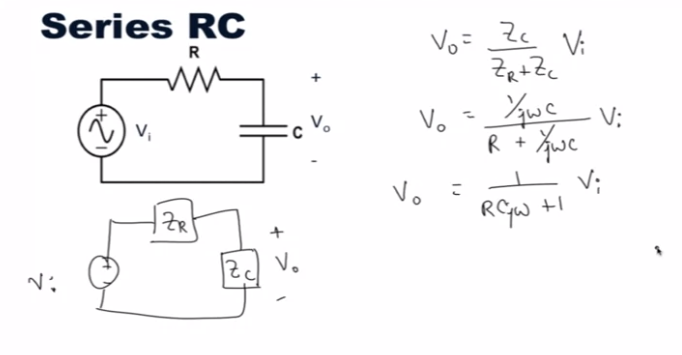 Series RC
R
+
Vi
C
Vo
-
ZR
+
Vi
ZC
Vo
-
Vo = ZC / (ZR + ZC) Vi
Vo = (1/jωC) / (R + 1/jωC) Vi
Vo = 1 / (RCjω + 1) Vi